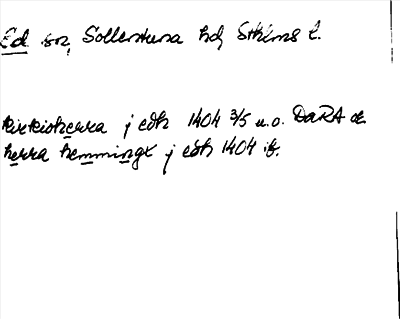 Ed sn, Sollentuna hd, Sthlms l.
kirkioherra j edh 1404 3/5 u.o. DaRA
herra hemmingx j edh 1404 ib.